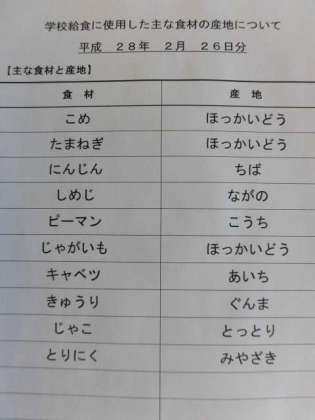 学校給食に使用した主な食材の産地について
平成 28年 2月 26日分
【主な食材と産地】
食 材 産 地
こめ ほっかいどう
たまねぎ ほっかいどう
にんじん ちば
しめじ ながの
ピーマン こうち
じゃがいも ほっかいどう
キャベツ あいち
きゅうり ぐんま
じゃこ とっとり
とりにく みやざき